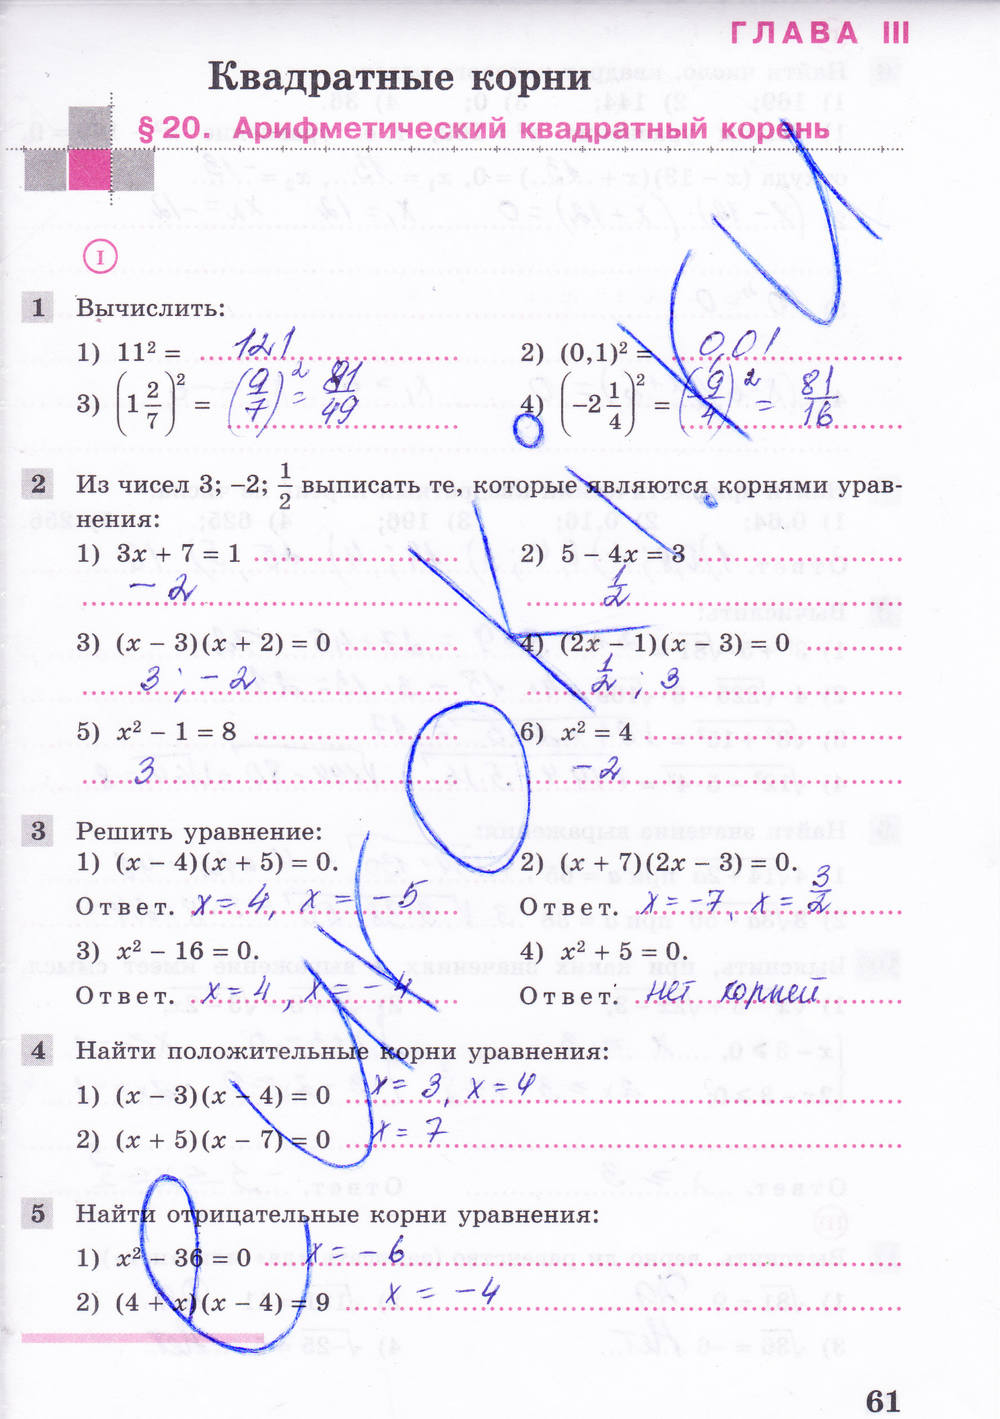 ГЛАВА III
Квадратные корни
§ 20. Арифметический квадратный корень
I
1 Вычислить:
1) 11² = 121
2) (0,1)² = 0,01
3) (1 2/7)² = (9/7)² = 81/49
4) (-2 1/4)² = (-9/4)² = 81/16
2 Из чисел 3; –2; 1/2 выписать те, которые являются корнями урав-
нения:
1) 3x + 7 = 1
2) 5 – 4x = 3
– 2
1/2
3) (x – 3)(x + 2) = 0
4) (2x – 1)(x – 3) = 0
3 ; – 2
1/2 ; 3
5) x² – 1 = 8
6) x² = 4
3
– 2
3 Решить уравнение:
1) (x – 4)(x + 5) = 0.
2) (x + 7)(2x – 3) = 0.
Ответ. x = 4, x = -5
Ответ. x = -7, x = 3/2
3) x² – 16 = 0.
4) x² + 5 = 0.
Ответ. x = 4, x = – 4
Ответ. нет корней
4 Найти положительные корни уравнения:
1) (x – 3)(x – 4) = 0 x = 3, x = 4
2) (x + 5)(x – 7) = 0 x = 7
5 Найти отрицательные корни уравнения:
1) x² – 36 = 0 x = – 6
2) (4 + x)(x – 4) = 9 x = – 4
61